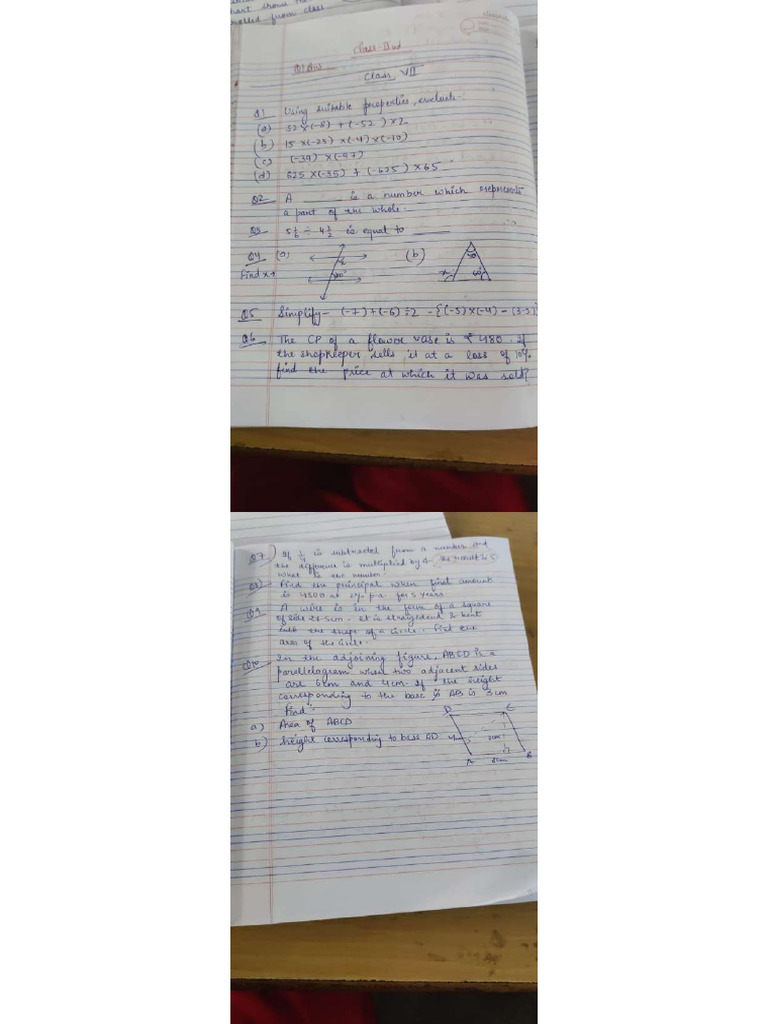 hart shows the
nrolled from class
Class-IInd
Q1 Ans
Class VII
Q1 Using suitable properties, evaluate:-
(a) 52×(-8) + (-52)×2
(b) 15×(-25)×(-4)×(-10)
(c) (-39)×(-97)
(d) 625×(-35) + (-625)×65
Q2 A ______ is a number which represents
a part of the whole.
Q3 5 1/6 ÷ 4 1/2 is equal to ______
Q4 (a) (b)
Find x→
x
x
Q5 Simplify- (-7)+(-6)÷2 - {(-5)×(-4) - (3-5)}
Q6 The CP of a flower vase is ₹480. If
the shopkeeper sells it at a loss of 10%
find the price at which it was sold?
Q7) If 1/4 is subtracted from a number and
the difference is multiplied by 4. The result is 5
what is the number.
Q8) Find the principal when final amount
is 4500 at p.a. for 5 years
Q9 A wire is in the form of a square
of side 27.5cm. It is straightened & bent
into the shape of a circle. Find the
area of the circle.
Q10 In the adjoining figure, ABCD is a
parallelogram when two adjacent sides
are 6cm and 4cm. If the height
corresponding to the base is AB is 3cm
Find:
a) Area of ABCD
b) height corresponding to base AD
D C
4cm 3cm
A B